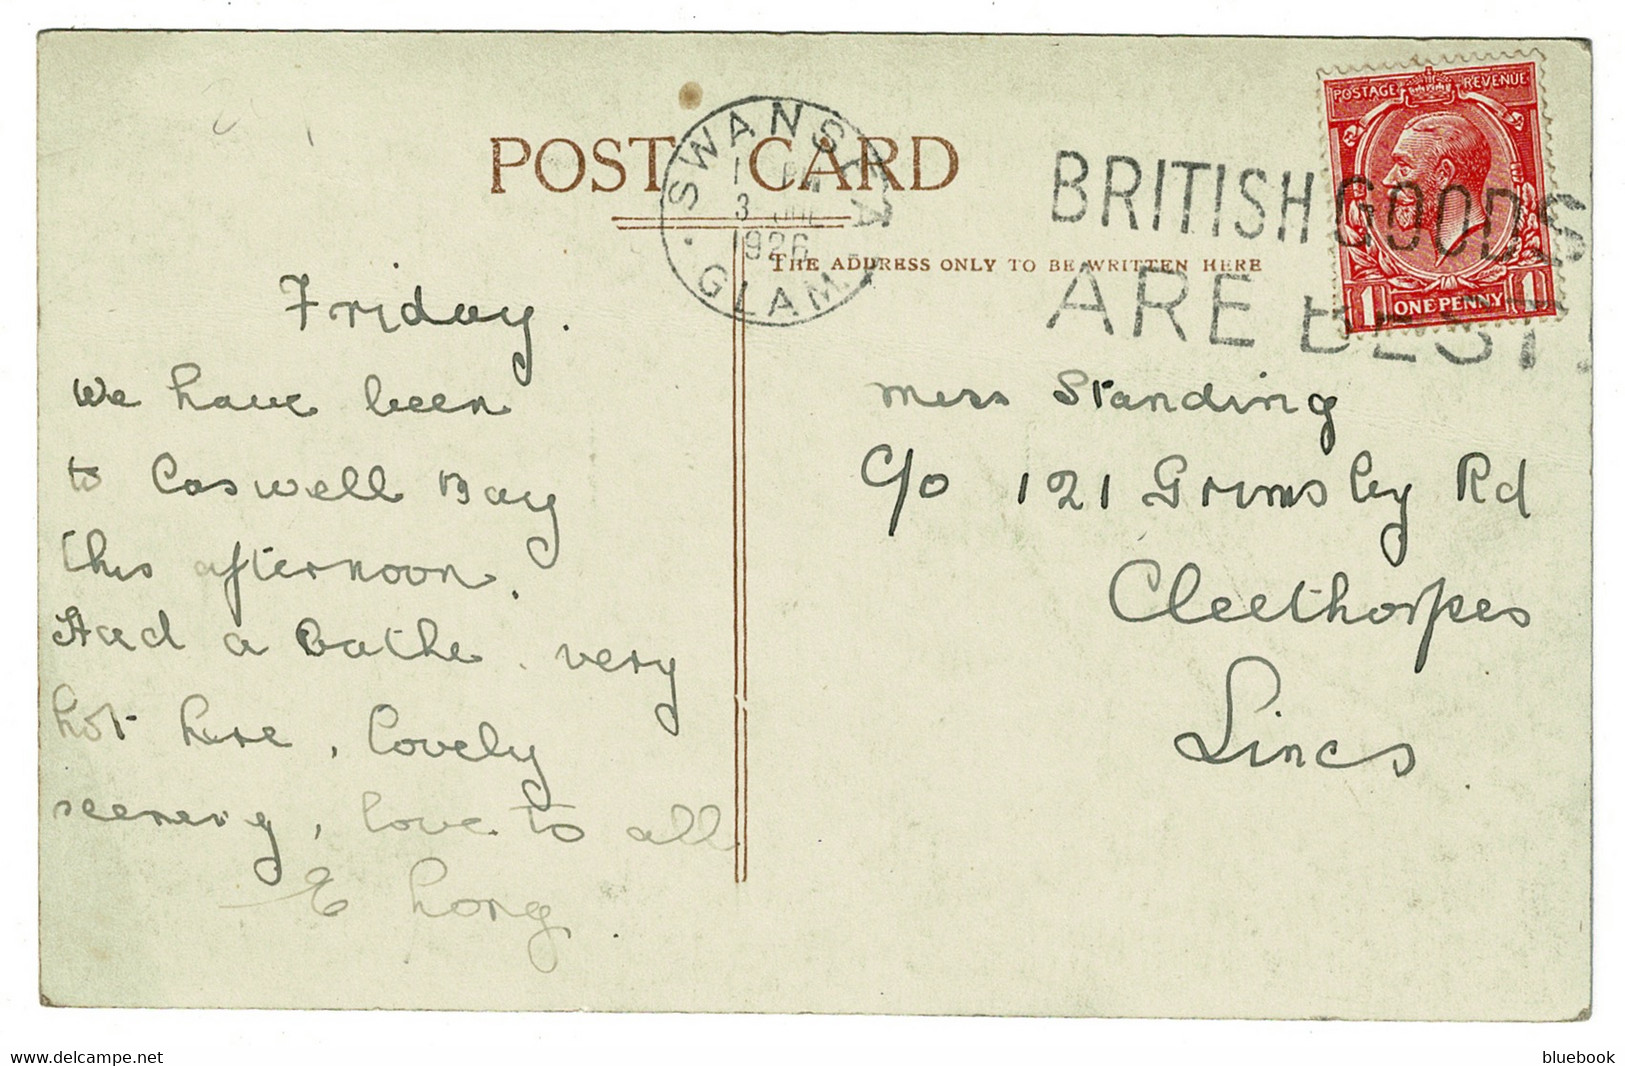 POST CARD
THE ADDRESS ONLY TO BE WRITTEN HERE
SWANSEA
1926
GLAM.
BRITISH GOODS
ARE BEST.
POSTAGE REVENUE
1 ONE PENNY 1
Friday.
We have been
to Caswell Bay
this afternoon.
Had a bathe. very
hot here, lovely
scenery, love to all
E Long.
Miss Standing
C/o 121 Grimsby Rd
Cleethorpes
Lincs
www.delcampe.net
bluebook